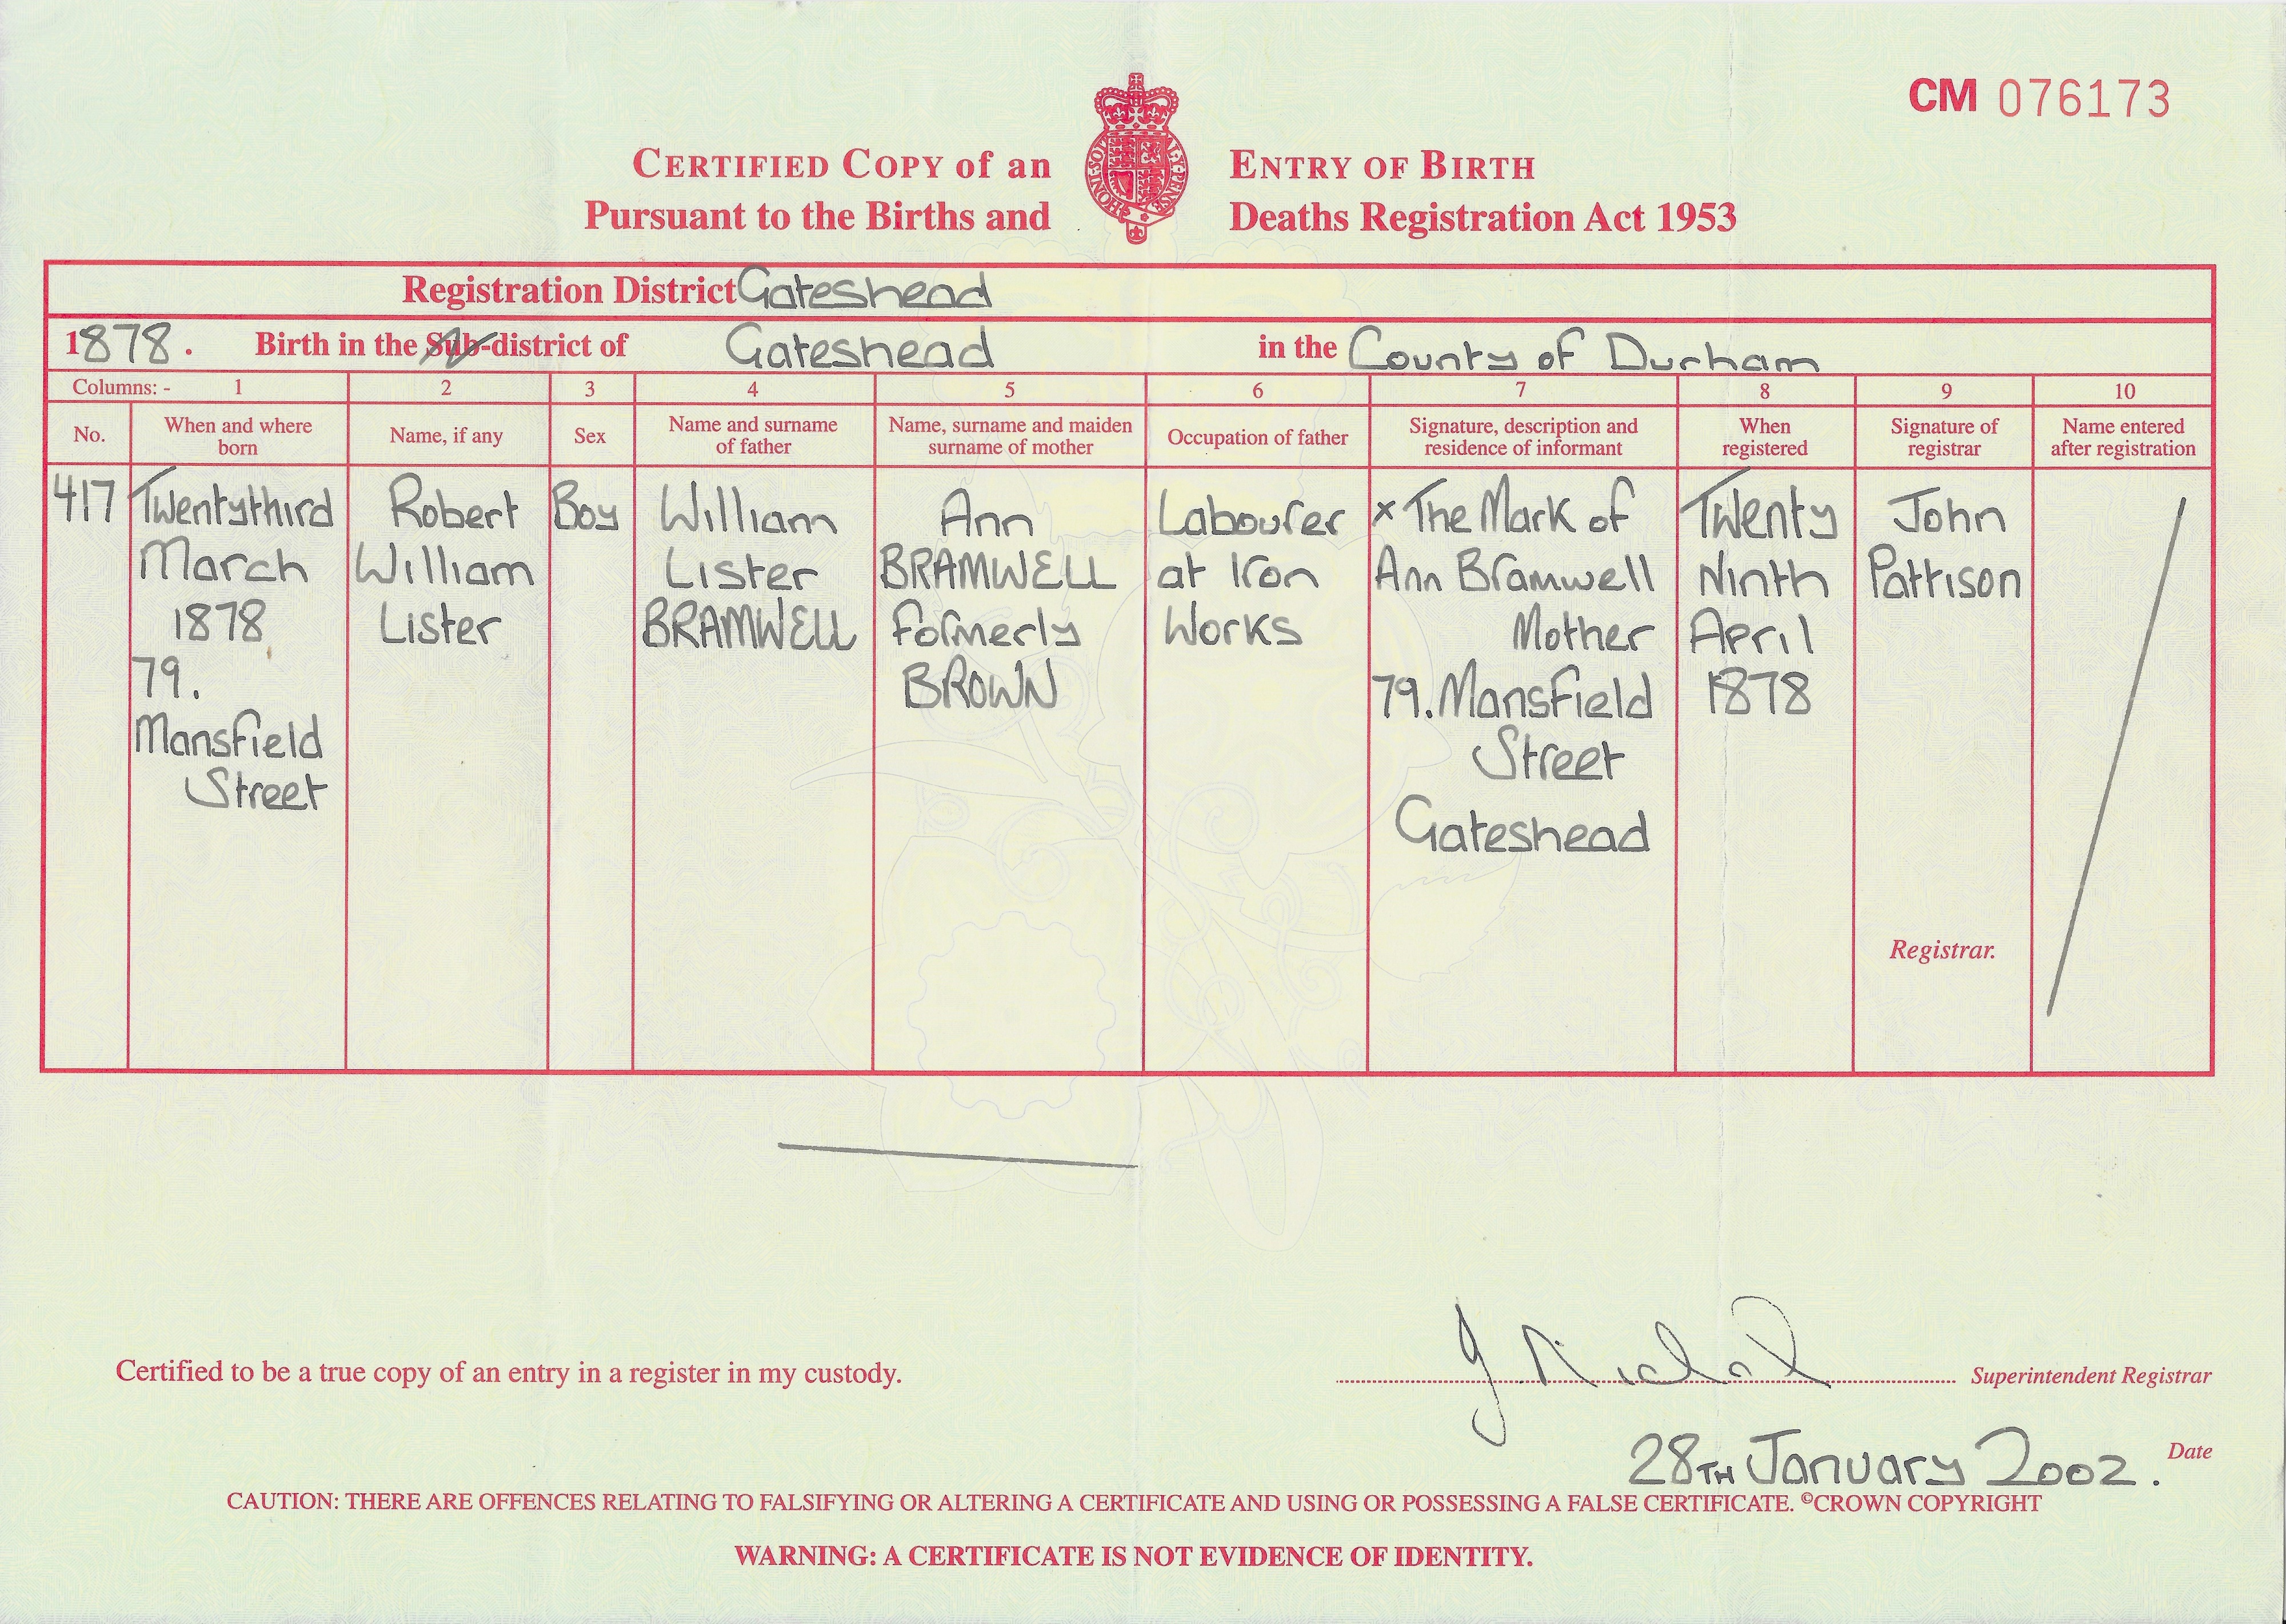 CM 076173
CERTIFIED COPY of an ENTRY OF BIRTH
Pursuant to the Births and Deaths Registration Act 1953
HONI·SOIT
AL·Y·PENSE
Registration District Gateshead
1878. Birth in the Sub-district of Gateshead in the County of Durham
Columns: - 1 2 3 4 5 6 7 8 9 10
No.
When and where
born
Name, if any
Sex
Name and surname
of father
Name, surname and maiden
surname of mother
Occupation of father
Signature, description and
residence of informant
When
registered
Signature of
registrar
Name entered
after registration
417
Twentythird
March
1878
79.
Mansfield
Street
Robert
William
Lister
Boy
William
Lister
BRAMWELL
Ann
BRAMWELL
formerly
BROWN
Labourer
at Iron
Works
x The Mark of
Ann Bramwell
Mother
79. Mansfield
Street
Gateshead
Twenty
Ninth
April
1878
John
Pattison
Registrar.
Certified to be a true copy of an entry in a register in my custody.
Superintendent Registrar
28TH January 2002.
Date
CAUTION: THERE ARE OFFENCES RELATING TO FALSIFYING OR ALTERING A CERTIFICATE AND USING OR POSSESSING A FALSE CERTIFICATE. ©CROWN COPYRIGHT
WARNING: A CERTIFICATE IS NOT EVIDENCE OF IDENTITY.